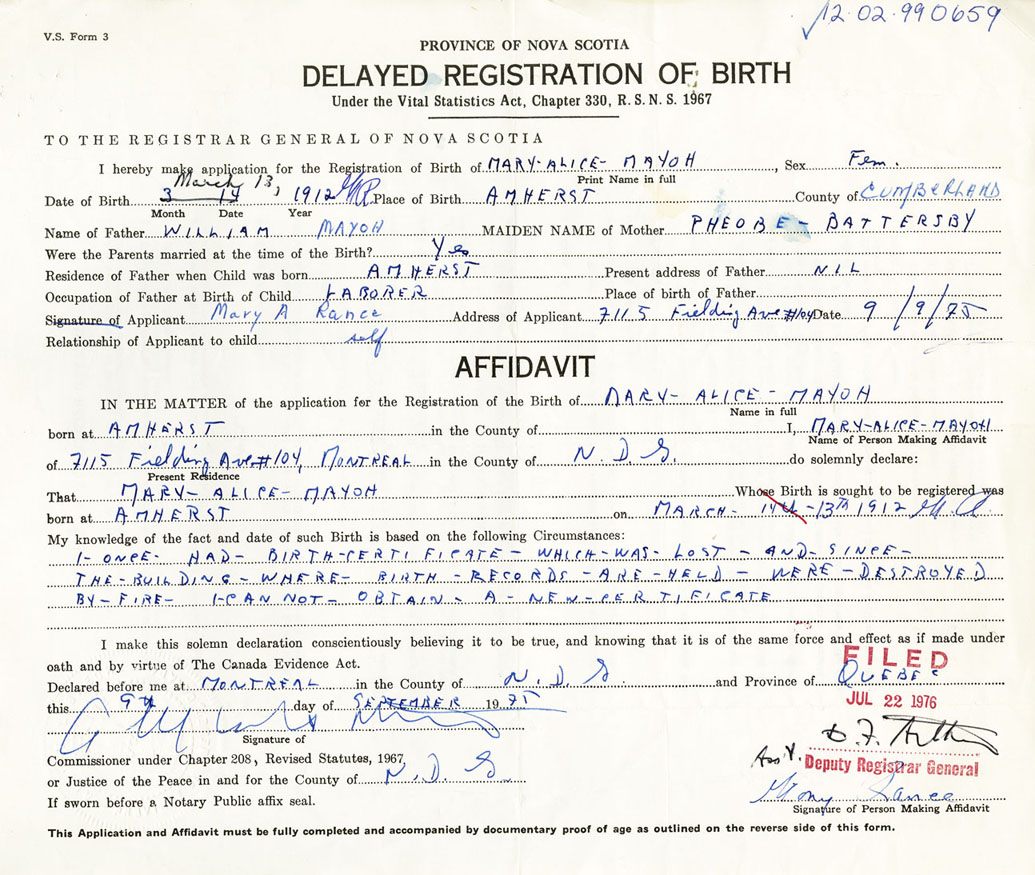 12·02·990659
V.S. Form 3
PROVINCE OF NOVA SCOTIA
DELAYED REGISTRATION OF BIRTH
Under the Vital Statistics Act, Chapter 330, R.S.N.S. 1967
TO THE REGISTRAR GENERAL OF NOVA SCOTIA
I hereby make application for the Registration of Birth of MARY-ALICE-MAYOH, Sex Fem.
Print Name in full
March 13,
Date of Birth 3 14 1912 Place of Birth AMHERST County of CUMBERLAND
Month Date Year
Name of Father WILLIAM MAYOH MAIDEN NAME of Mother PHEOBE-BATTERSBY
Were the Parents married at the time of the Birth? Yes
Residence of Father when Child was born AMHERST Present address of Father NIL
Occupation of Father at Birth of Child LABORER Place of birth of Father
Signature of Applicant Mary A Rance Address of Applicant 7115 Fielding Ave #104 Date 9/9/75
Relationship of Applicant to child self
AFFIDAVIT
IN THE MATTER of the application for the Registration of the Birth of MARY-ALICE-MAYOH
Name in full
born at AMHERST in the County of I, MARY-ALICE-MAYOH
Name of Person Making Affidavit
of 7115 Fielding Ave #104, MONTREAL in the County of N.D.G. do solemnly declare:
Present Residence
That MARY-ALICE-MAYOH Whose Birth is sought to be registered was
born at AMHERST on MARCH-14th-13TH 1912
My knowledge of the fact and date of such Birth is based on the following Circumstances:
I-ONCE-HAD-BIRTH-CERTIFICATE-WHICH-WAS-LOST-AND-SINCE-
THE-BUILDING-WHERE-BIRTH-RECORDS-ARE-HELD-WERE-DESTROYED
BY-FIRE-I-CAN NOT-OBTAIN-A-NEW-CERTIFICATE
I make this solemn declaration conscientiously believing it to be true, and knowing that it is of the same force and effect as if made under
oath and by virtue of The Canada Evidence Act.
FILED
Declared before me at MONTREAL in the County of N.D.G and Province of QUEBEC
JUL 22 1976
this 9th day of SEPTEMBER 1975
Signature of
Commissioner under Chapter 208, Revised Statutes, 1967,
Ass't. Deputy Registrar General
or Justice of the Peace in and for the County of N.D.G.
Mary Rance
If sworn before a Notary Public affix seal.
Signature of Person Making Affidavit
This Application and Affidavit must be fully completed and accompanied by documentary proof of age as outlined on the reverse side of this form.